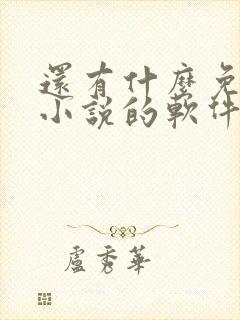 還有什麼免
小說的軟件
盧秀華